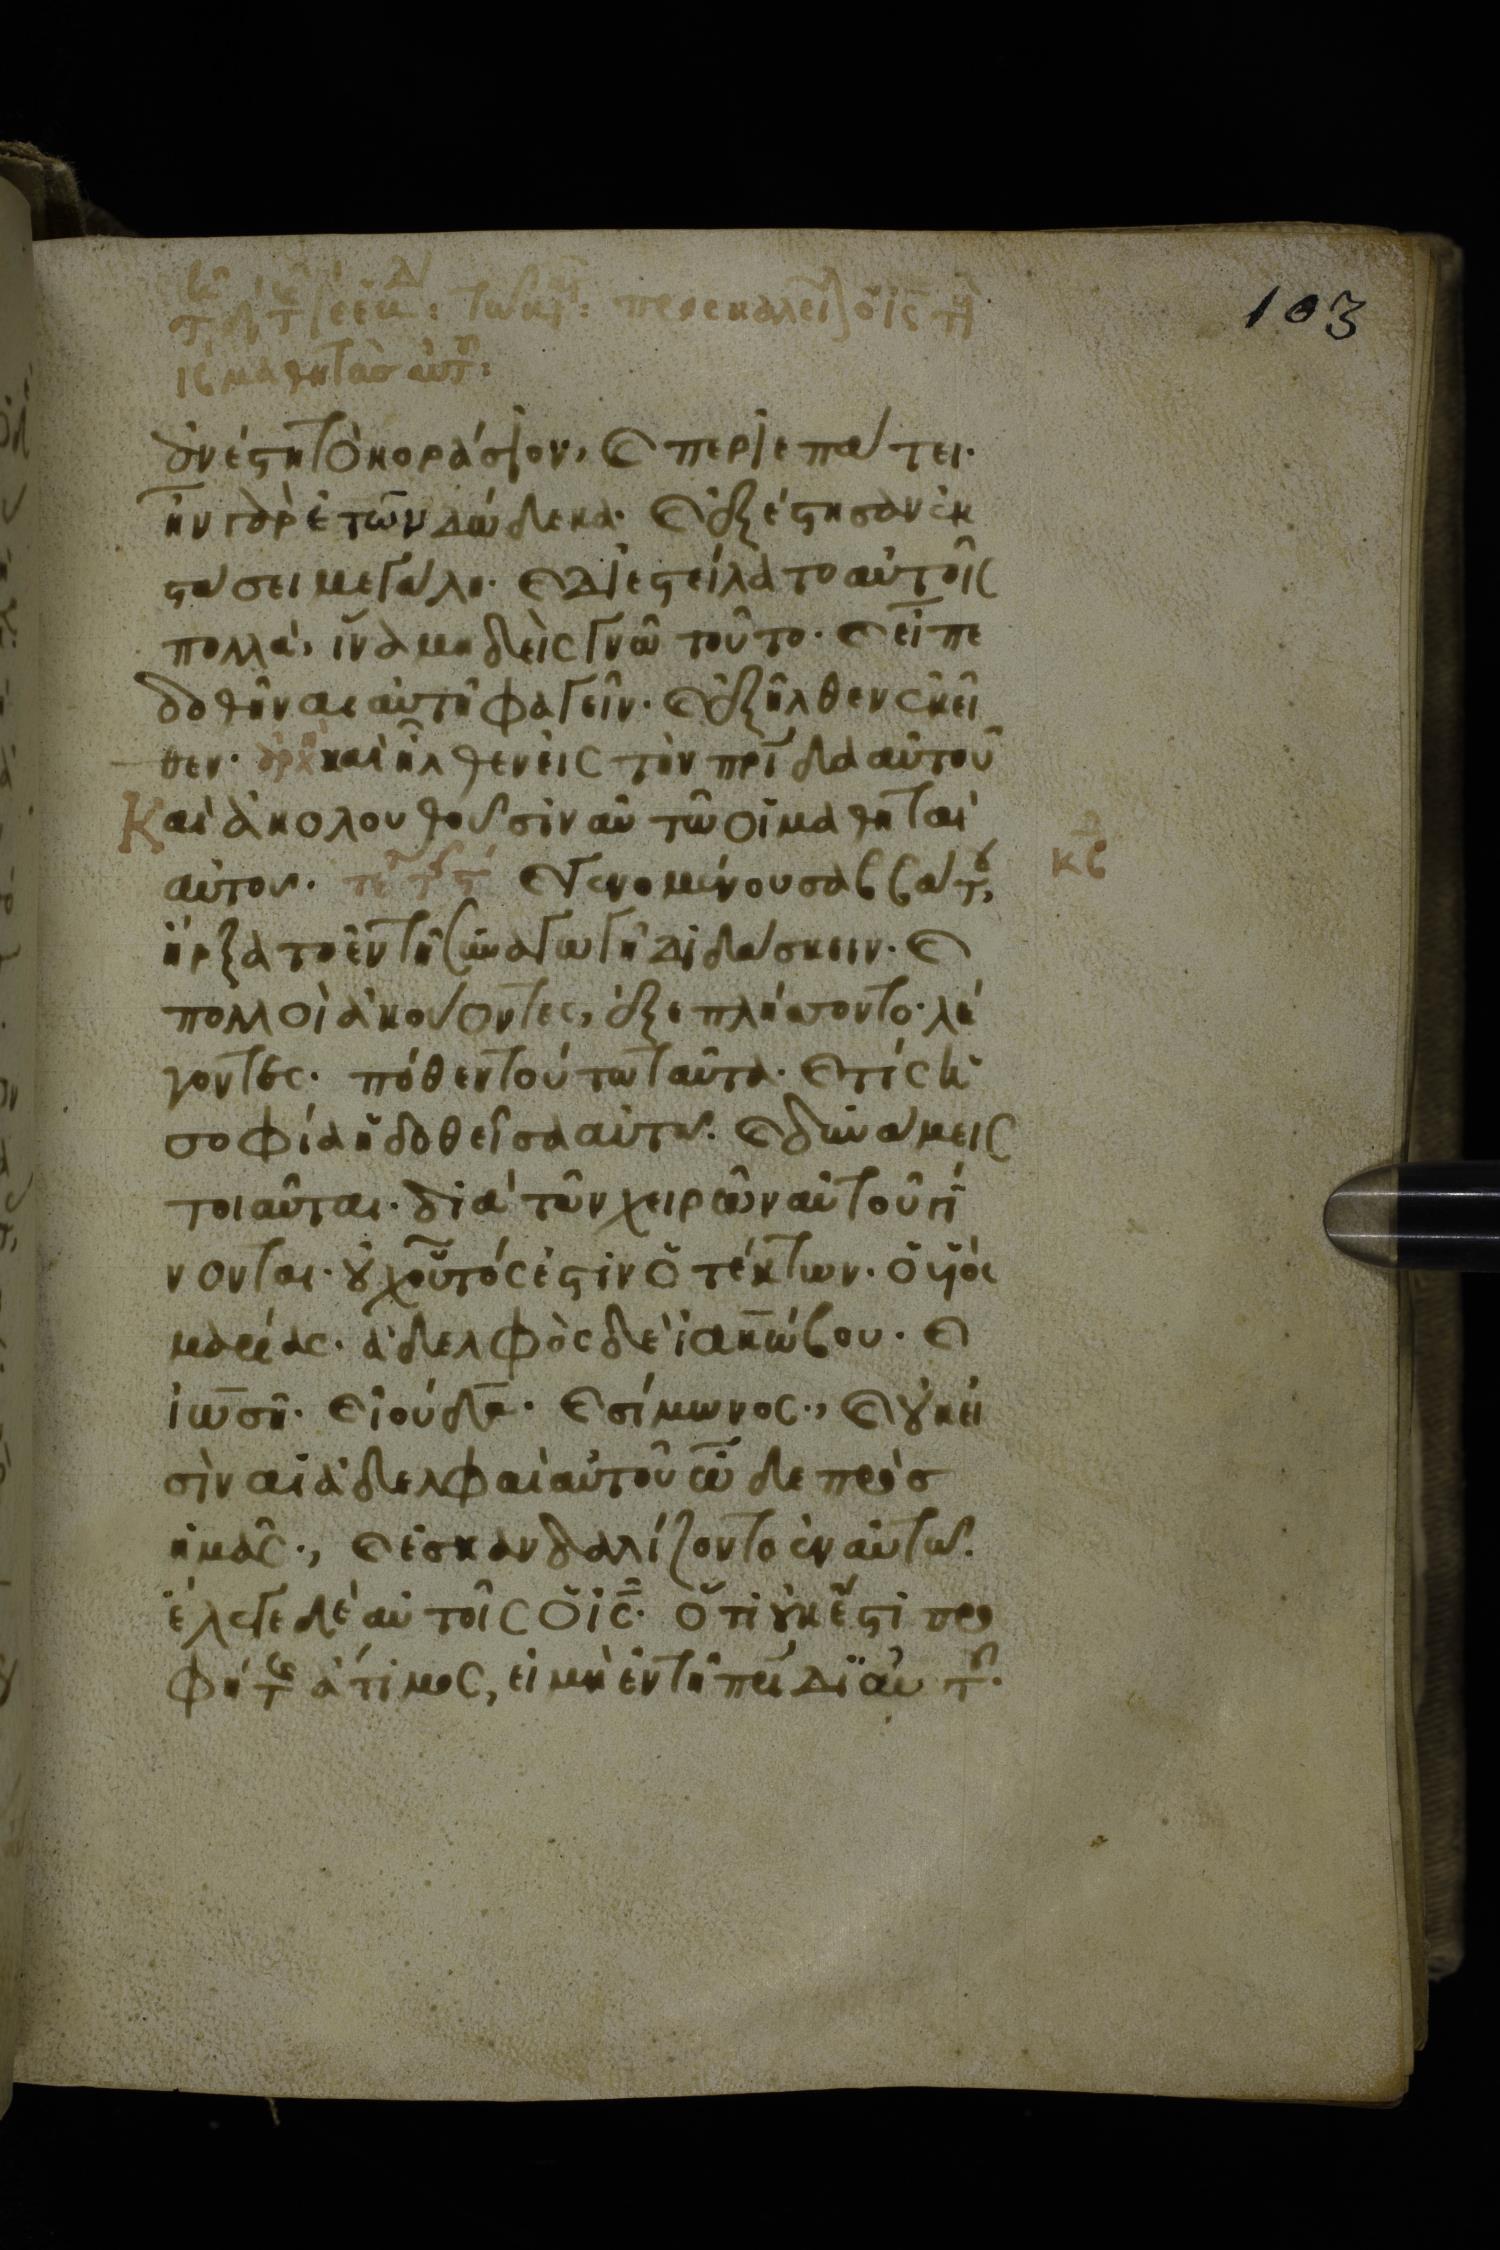 103
ἀνέστη τὸ κοράσιον, καὶ περιεπάτει·
ἦν γὰρ ἐτῶν δώδεκα· καὶ ἐξέστησαν ἐκ
στάσει μεγάλη· καὶ διεστείλατο αὐτοῖς
πολλά, ἵνα μηδεὶς γνῶ τοῦτο· καὶ εἶπε
δοθῆναι αὐτῆ φαγεῖν· καὶ ἐξῆλθεν ἐκεῖ
θεν· ἀρχ καὶ ἦλθεν εἰς τὴν πρίδα αὐτοῦ
Καὶ ἀκολουθοῦσιν αὐτῶ οἱ μαθηταὶ
αὐτοῦ· καὶ γενομένου σαββάτου,
ἤρξατο ἐν τῆ συναγωγῆ διδάσκειν· καὶ
πολλοὶ ἀκούοντες, ἐξεπλήσσοντο· λέ
γοντες· πόθεν τούτω ταῦτα· καὶ τίς ἡ
σοφία ἡ δοθεῖσα αὐτῶ· καὶ δυνάμεις
τοιαῦται· διὰ τῶν χειρῶν αὐτοῦ γί
νονται· οὐχ οὗτός ἐστιν ὁ τέκτων· ὁ υἱὸς
μαρίας· ἀδελφὸς δὲ ἰακώβου· καὶ
ἰωσῆ· καὶ ἰούδα· καὶ σίμωνος·, καὶ οὐκ εἰ
σὶν αἱ ἀδελφαὶ αὐτοῦ ὧδε πρὸσ
ἡμᾶς·, καὶ ἐσκανδαλίζοντο ἐν αὐτῶ·
ἔλεγε δὲ αὐτοῖς ὁ ις· ὅτι οὐκ ἔστι προ
φήτης ἄτιμος, εἰ μὴ ἐν τῆ πρίδι αὐτοῦ·
κβ